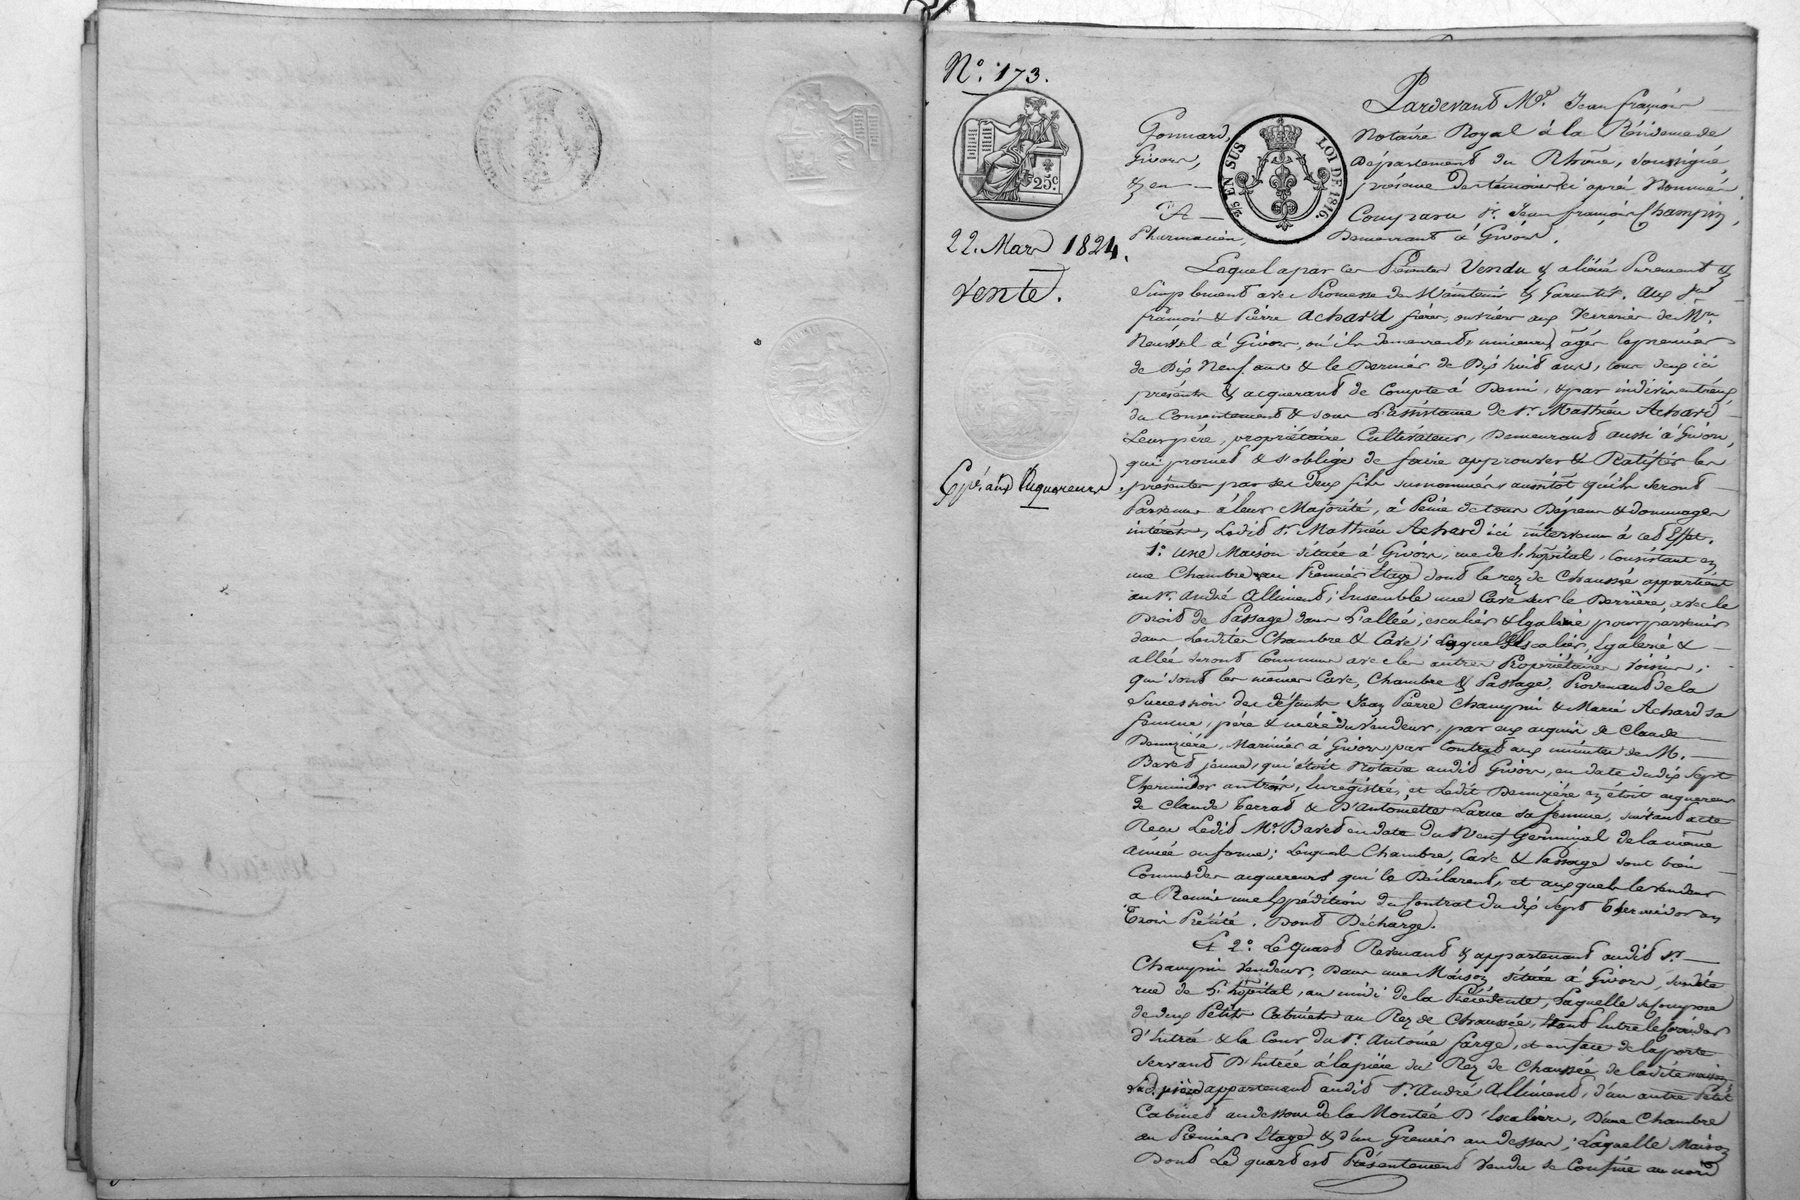 N.º 173.
25c.
5/5 EN SUS LOI DE 1816.
22. Mars 1824.
Vente.
Epé. aux Acquereurs
Pardevant Me. Jean françois
Gonnard, Notaire Royal à la Résidence de
Givors, Département du Rhône, soussigné
& en présence des témoins ci après Nommés
A Comparu sr. Jean françois Champin,
Pharmacien, Demeurant à Givors.
Lequel a par ces Présentes Vendu & aliéné Purement &
Simplement avec Promesse de Maintenir & Garantir. Aux srs
françois & Pierre Achard frères, ouvriers aux Verreries de Mrs
Neuvesel à Givors, où ils demeurent, mineurs, agés le premier
de Dix Neuf ans & le Dernier de Dix huit ans, tous deux ici
présents & acquerant de Compte à Demi, & par indivis entr'eux
du Consentement & sous L'assistance de sr. Mathieu Achard
Leur père, propriétaire Cultivateur, Demeurant aussi à Givors,
qui promet & s'oblige de faire approuver & Ratifier les
présentes par ses deux fils susnommés aussitôt qu'ils seront
Parvenus à leur Majorité, à Peine de tous Dépens & dommages
intérets, Ledit sr. Mathieu Achard ici intervenu à cet Effet.
1.º Une Maison située à Givors, rue de L'hôpital, Consistant en
une Chambre au Premier Etage dont le rez de Chaussée appartient
au sr. André Alliment; Ensemble une Cave sur le Derrière, avec le
Droit de Passage dans L'allée, escalier & Egalerie pour parvenir
dans Lesdites Chambre & Cave; Lesquels Escalier, Egalerie &
allée seront Communs avec les autres Propriétaires voisins;
qui sont les mêmes Cave, Chambre & Passage, Provenant de la
Succession des défunts Jean Pierre Champin & Marie Achard sa
femme, père & mère du Vendeur, par eux acquis de Claude
Demizière, Marinier à Givors, par Contrat aux minutes de M.
Baret jeune, qui étoit Notaire audit Givors, en date du dix Sept
Thermidor an trois, Enregistré, et Ledit Demizière en étoit acquereur
de Claude Terrat & D'Antoinette Larue sa femme, suivant acte
Reçu Ledit Me. Baret en date du Neuf Germinal de la même
Année en forme; Lesquels Chambre, Cave & Passage sont bien
Connus des acquereurs qui le Déclarent, et auxquels le Vendeur
a Remis une Expédition du Contrat du dix Sept Thermidor an
Trois Précité. Dont Décharge.
Et 2.º Le Quart Revenant & appartenant audit sr.
Champin Vendeur, Dans une Maison située à Givors, susdite
rue de L'hôpital, au midi de la Précédente, Laquelle se Compose
de deux Petits Cabinets au Rez de Chaussée, Etant Entre le Corridor
d'Entrée & la Cour du sr. Antoine farge, et en face de la porte
servant D'Entrée à la pièce du Rez de Chaussée de ladite maison
Lad. pièce appartenant audit Sr. André Alliment, d'un autre Petit
Cabinet au dessous de la Montée D'Escaliers, D'une Chambre
au Premier Etage & d'un Grenier au dessus; Laquelle Maison
Dont Le quart est Présentement Vendu se Confine au nord